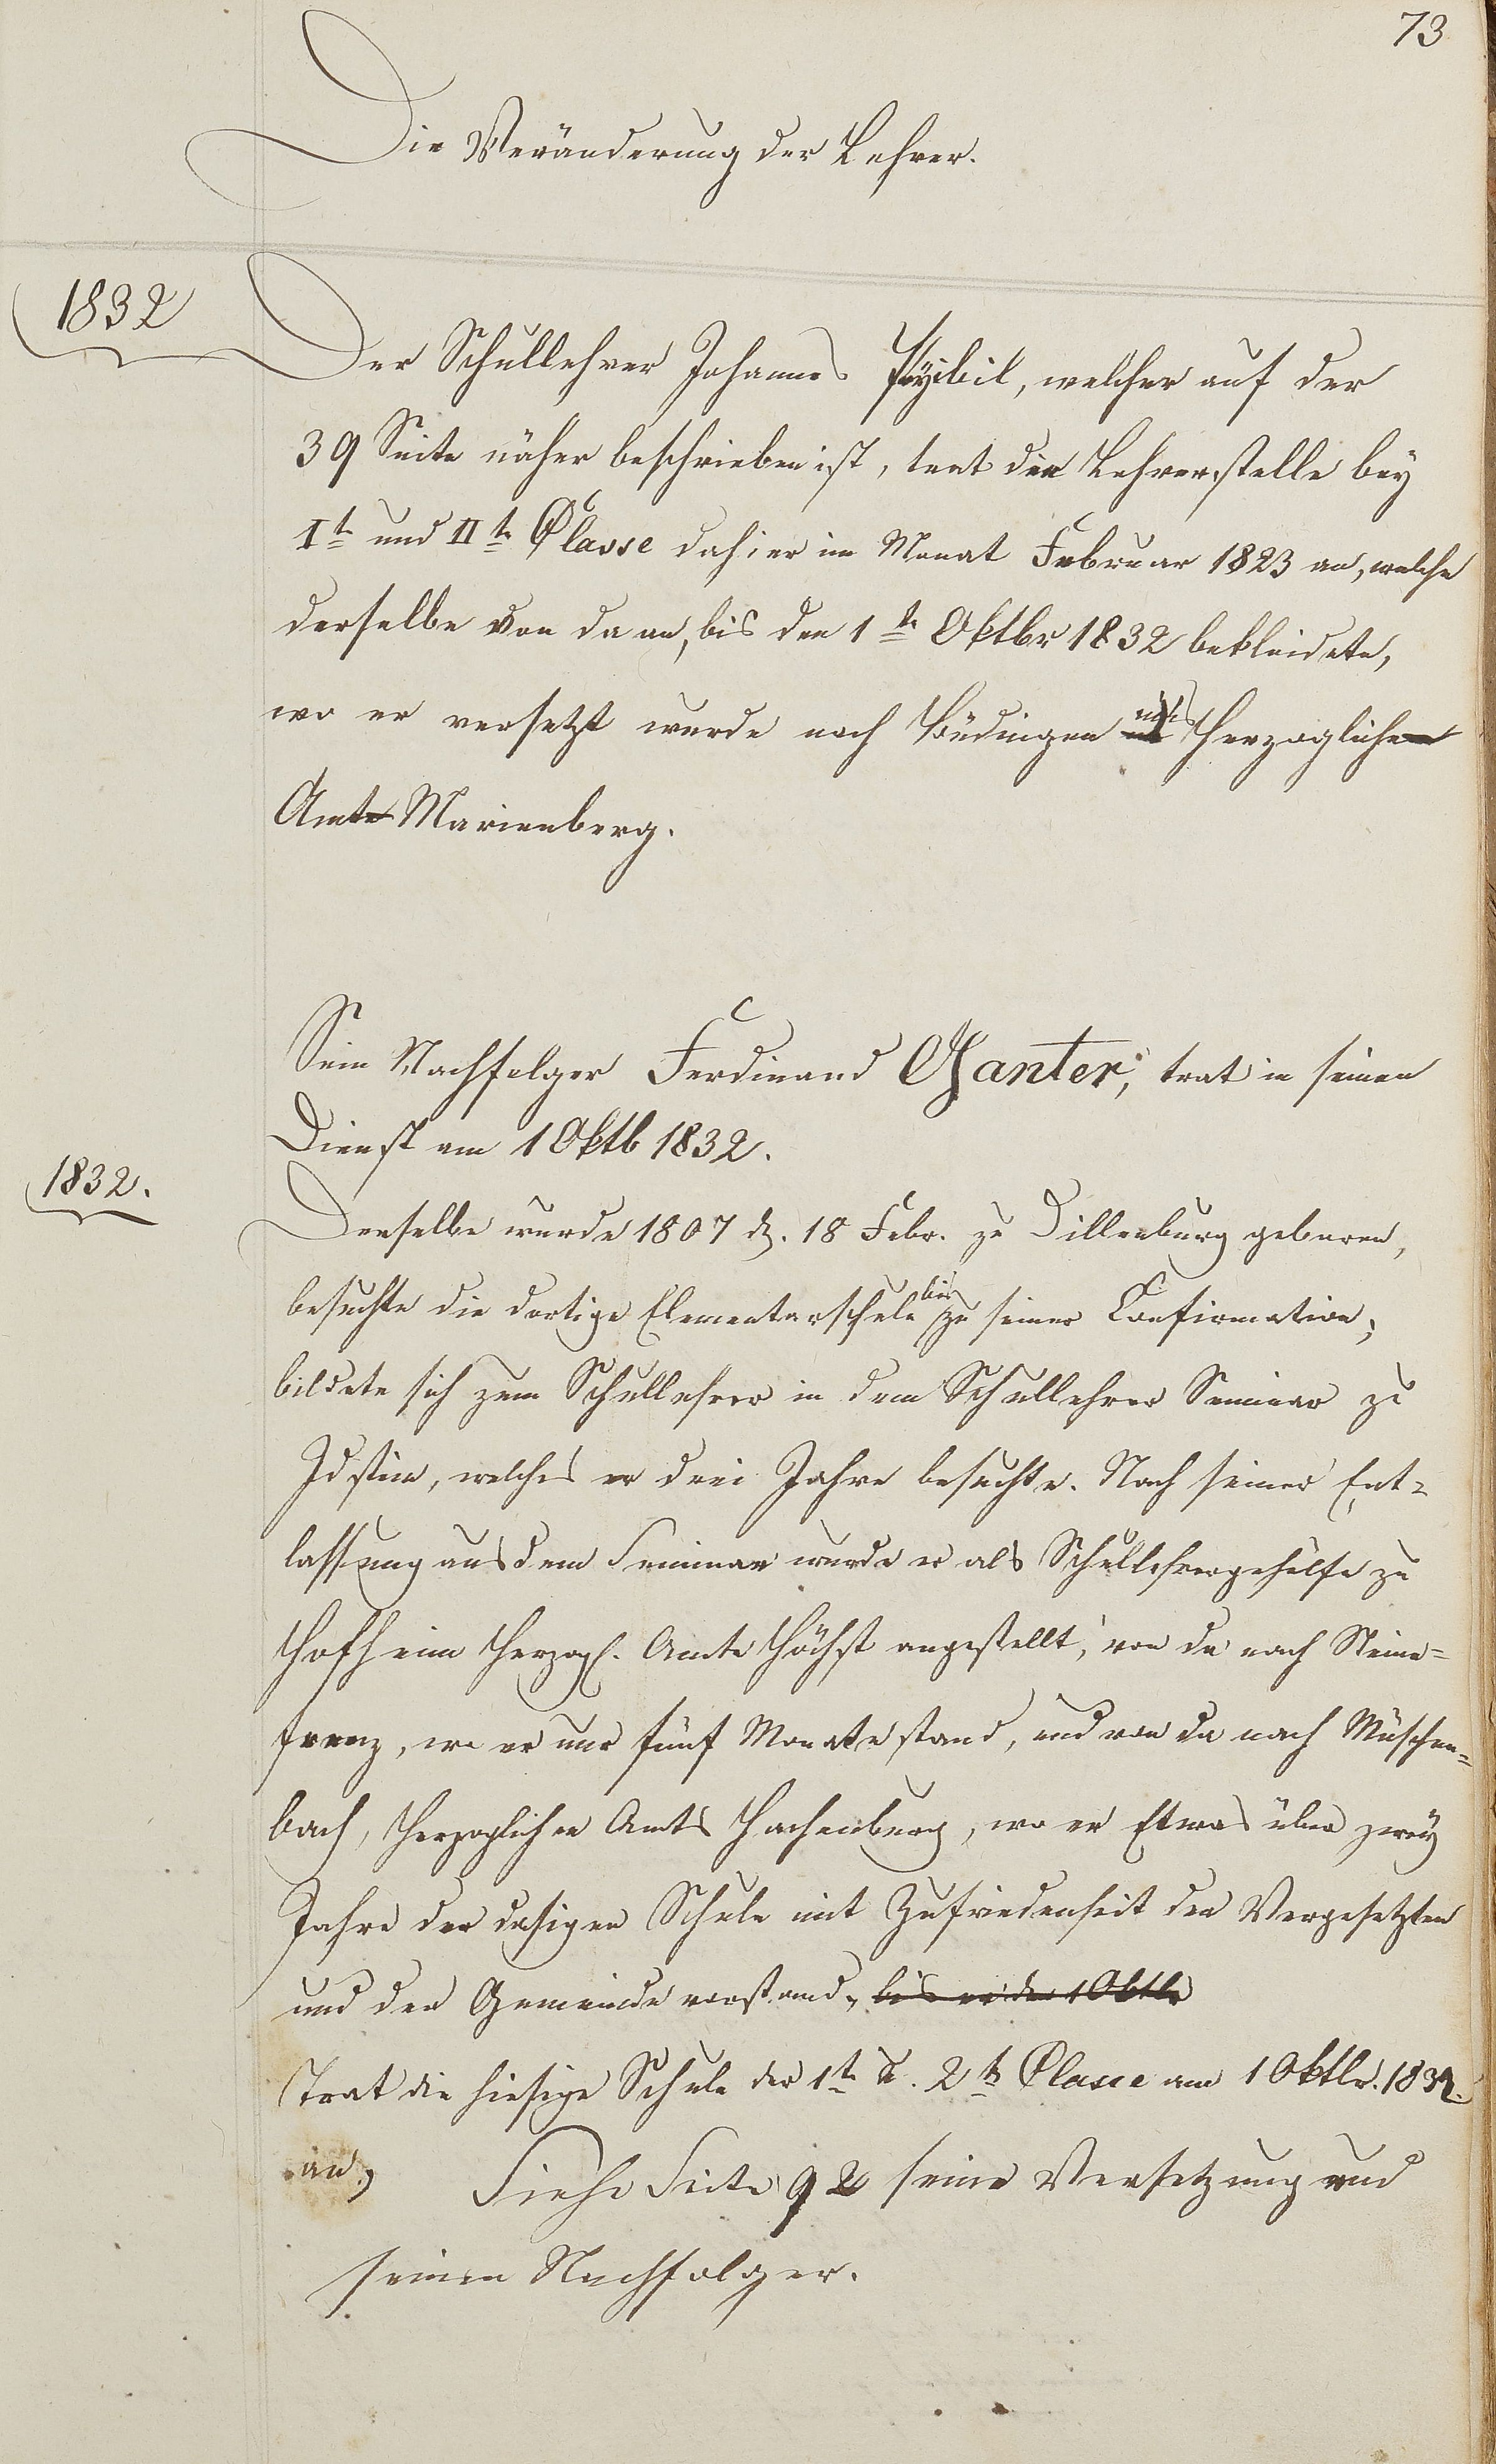 73
Die Veränderung der Lehrer.
1832
Der Schullehrer Johannes Pryibil, welcher auf der
39 Seite näher beschrieben ist, trat die Lehrerstelle bey
It und IIte Classe dahier im Monat Februar 1823 an, welche
derselbe von da an, bis den 1te Oktbr 1832 bekleidete,
wo er versetzt wurde nach Büdingen Herzogliche
Amt Marienberg.
Sein Nachfolger Ferdinand Ganter, trat in seinen
Dienst am 1 Oktb 1832.
1832.
Derselbe wurde 1807 d. 18 Febr. zu Dillenburg geboren,
besuchte die dortige Elementarschule bis zu seiner Confirmation;
bildete sich zum Schullehrer in dem Schullehrer Seminar zu
Idstein, welches er drei Jahre besuchte. Nach seiner Ent=
lassung aus dem Seminar wurde er als Schullehrergehülfe zu
Hofheim Herzogl. Amts Höchst angestellt, von da nach Steine=
frenz, wo er nur fünf Monate stand, und von da nach Müschen=
bach, Herzoglichen Amts Hachenburg, wo er Etwas über zwey
Jahre der dasigen Schule mit Zufriedenheit der Vorgesetzten
und der Gemeinde vorstand, bis er den 1 Oktbr
Trat die hiesige Schule der 1te u. 2te Classe am 1 Oktbr. 1832.
an, Siehe Seite 92 seine Versetzung und
seinen Nachfolger.